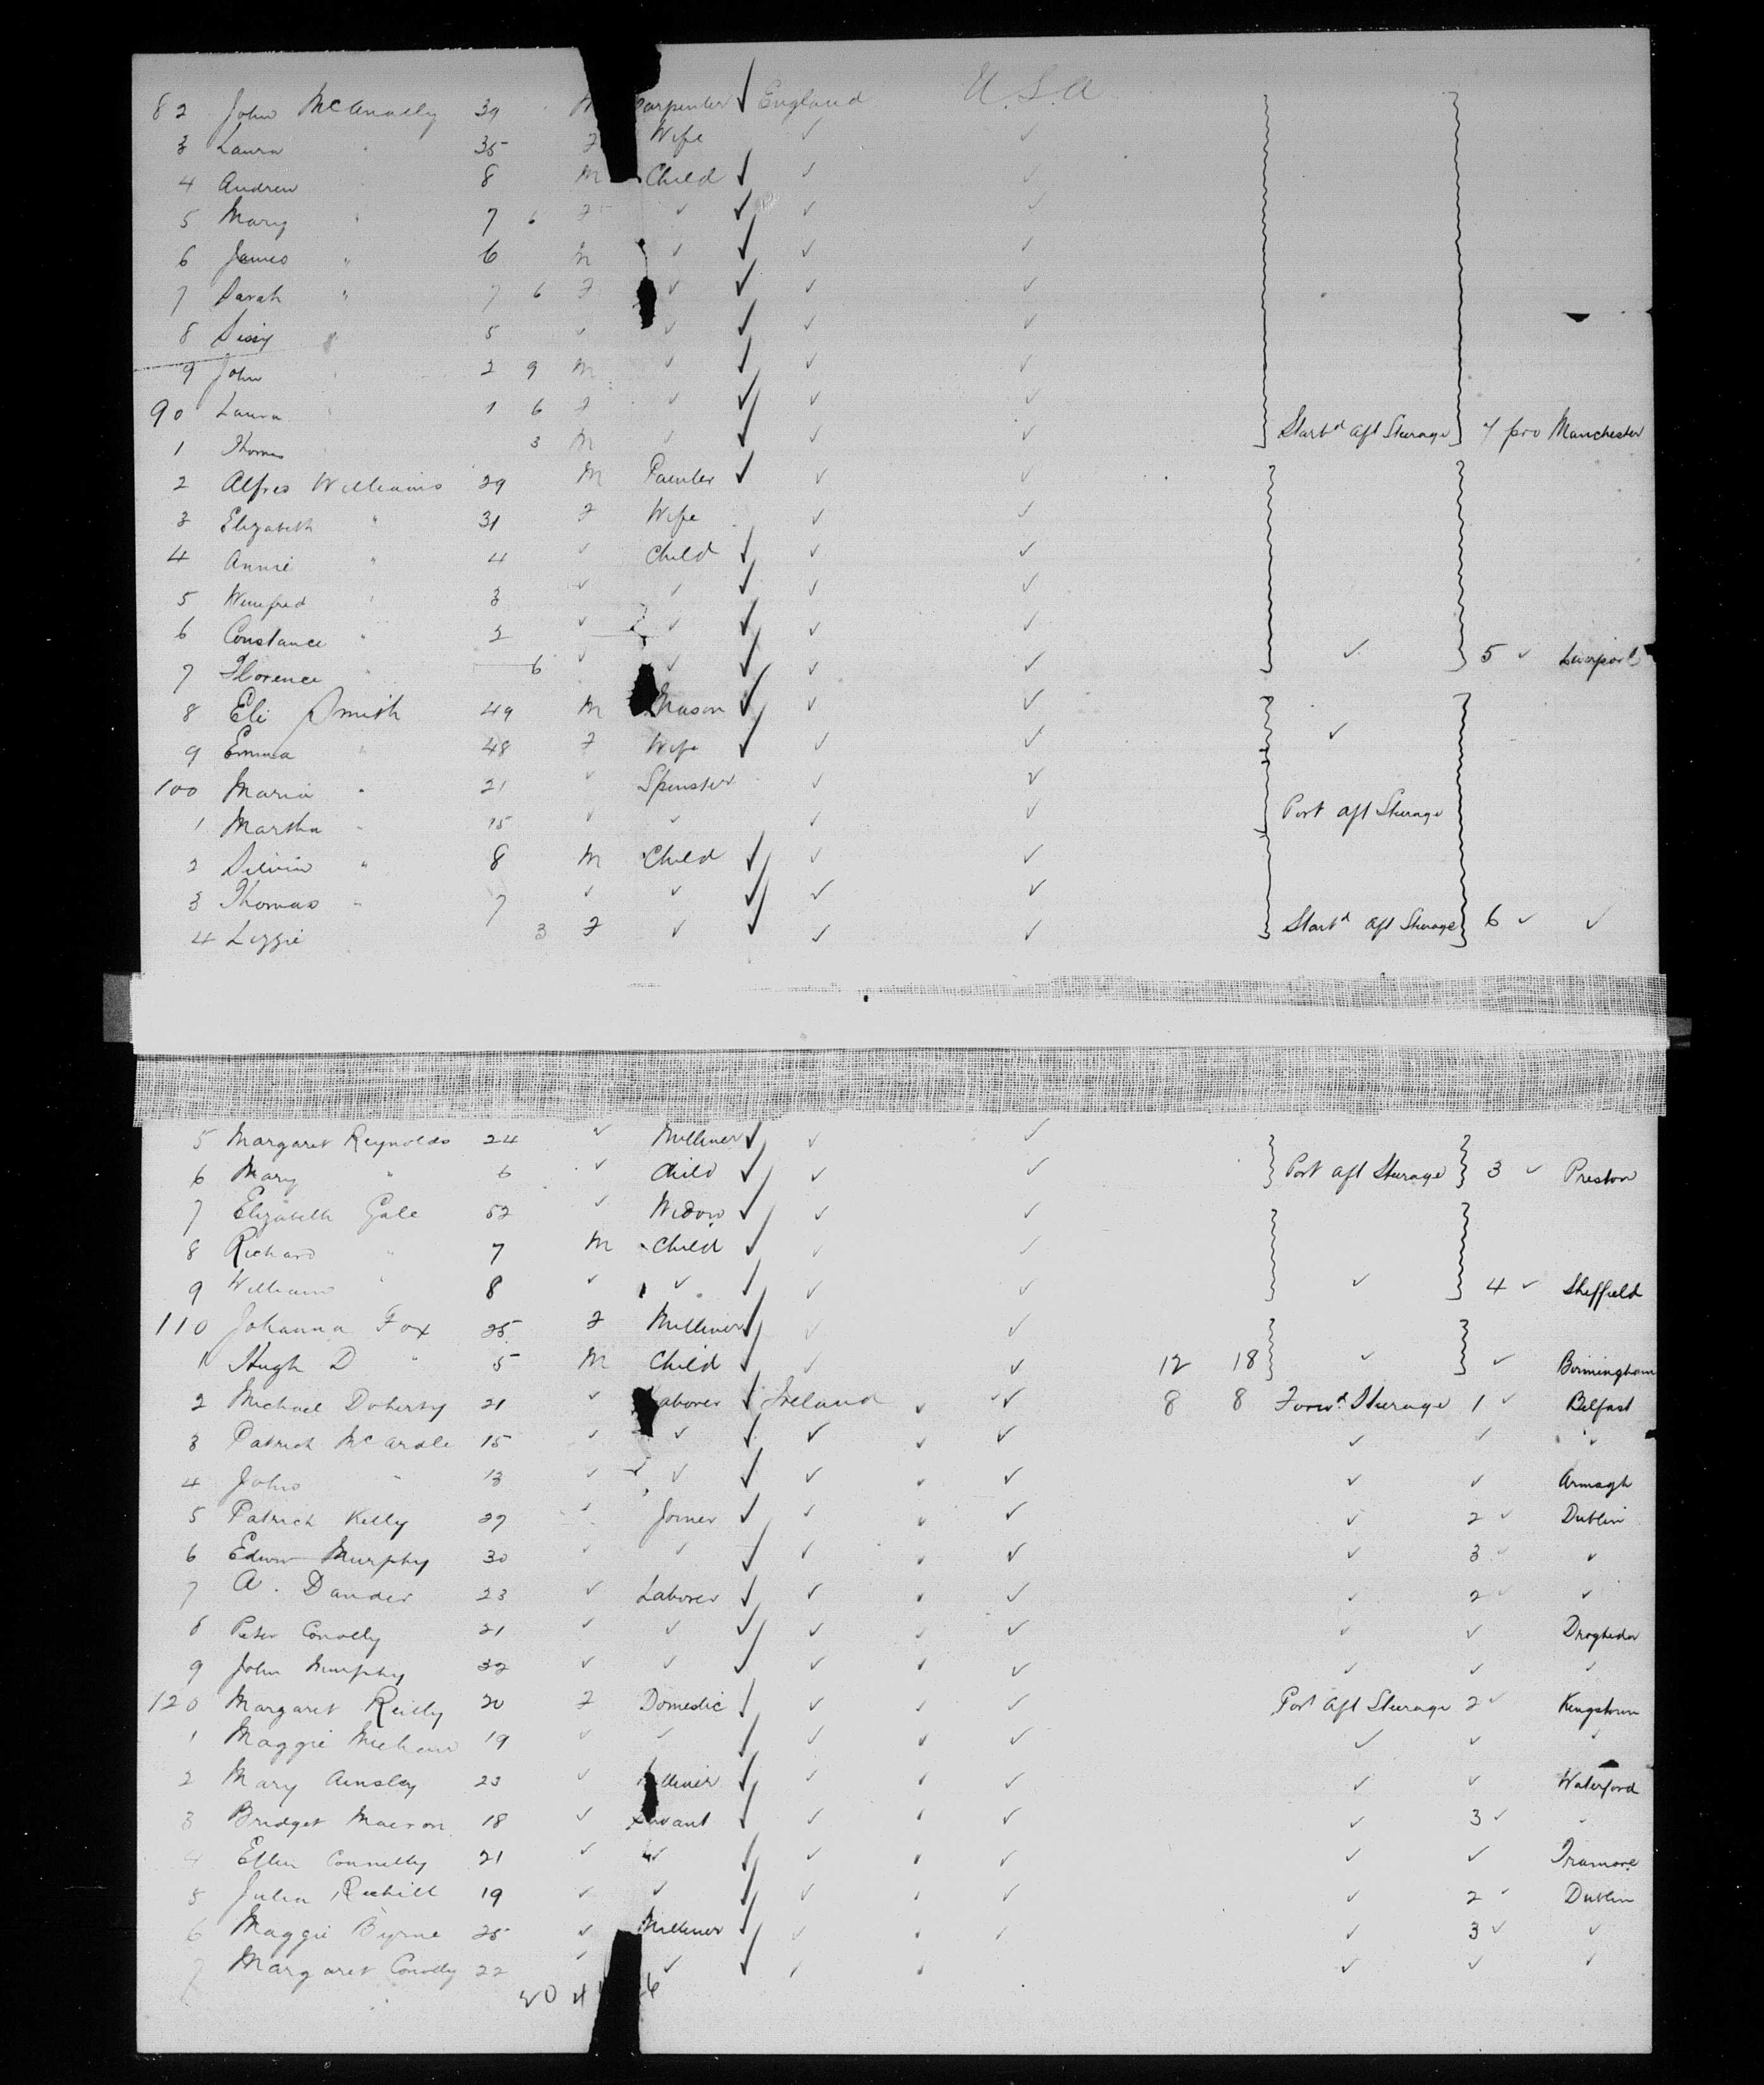 82 John McAnally 39 M Carpenter ✓ England U.S.A
3 Laura " 35 F Wife ✓ ✓
4 Andrew 8 M Child ✓ ✓ ✓
5 Mary " 7 6 F ✓ ✓ ✓ ✓
6 James " 6 M ✓ ✓ ✓ ✓
7 Sarah " 7 6 F ✓ ✓ ✓ ✓
8 Sissy " 5 ✓ ✓ ✓ ✓ ✓
9 John 2 9 M ✓ ✓ ✓ ✓
90 Laura 1 6 F ✓ ✓ ✓ ✓ Starbd aft Steerage 7 pro Manchester
1 Thomas 3 M ✓ ✓ ✓ ✓
2 Alfred Williams 29 M Painter ✓ ✓ ✓
3 Elizabeth " 31 F Wife ✓ ✓
4 Annie " 4 ✓ Child ✓ ✓ ✓
5 Winifred " 3 ✓ ✓ ✓ ✓ ✓
6 Constance " 2 ✓ ✓ ✓ ✓ ✓
7 Florence " 6 ✓ ✓ ✓ ✓ ✓ ✓ 5 ✓ Liverpool
8 Eli Smith 49 M Mason ✓ ✓ ✓ ✓
9 Emma " 48 F Wife ✓ ✓ ✓
100 Maria " 21 ✓ Spinster ✓ ✓
1 Martha " 15 ✓ ✓ ✓ ✓ Port aft Steerage
2 " 8 M Child ✓ ✓ ✓
3 Thomas " 7 ✓ ✓ ✓ ✓ ✓
4 Lizzie 3 F ✓ ✓ ✓ ✓ Starbd aft Steerage 6 ✓ ✓
5 Margaret Reynolds 24 ✓ Milliner ✓ ✓ ✓
6 Mary " 6 ✓ Child ✓ ✓ ✓ Port aft Steerage 3 ✓ Preston
7 Elizabeth Gale 52 ✓ Widow ✓ ✓ ✓
8 Richard " 7 M Child ✓ ✓ ✓
9 William " 8 ✓ ✓ ✓ ✓ ✓ ✓ 4 ✓ Sheffield
110 Johanna Fox 25 F Milliner ✓ ✓ ✓
1 Hugh D " 5 M Child ✓ ✓ ✓ 12 18 ✓ ✓ Birmingham
2 Michael Doherty 21 ✓ Laborer ✓ Ireland ✓ ✓✓ 8 8 Forwd Steerage 1 ✓ Belfast
3 Patrick McArdle 15 ✓ ✓ ✓ ✓ ✓ ✓ ✓ ✓ ✓
4 John " 13 ✓ ✓ ✓ ✓ ✓ ✓ ✓ ✓ Armagh
5 Patrick Kelly 27 ✓ Joiner ✓ ✓ ✓ ✓ ✓ 2 ✓ Dublin
6 Edwin Murphy 30 ✓ ✓ ✓ ✓ ✓ ✓ ✓ 3 ✓ ✓
7 A. Dander 23 ✓ Laborer ✓ ✓ ✓ ✓ ✓ 2 ✓ ✓
8 Peter Conolly 21 ✓ ✓ ✓ ✓ ✓ ✓ ✓ ✓ Drogheda
9 John Murphy 32 ✓ ✓ ✓ ✓ ✓ ✓ ✓ ✓ ✓
120 Margaret Reilly 20 F Domestic ✓ ✓ ✓ ✓ Port aft Steerage 2 ✓ Kingstown
1 Maggie 19 ✓ ✓ ✓ ✓ ✓ ✓ ✓ ✓ ✓
2 Mary Ainsley 23 ✓ Milliner ✓ ✓ ✓ ✓ ✓ ✓ Waterford
3 Bridget 18 ✓ Servant ✓ ✓ ✓ ✓ ✓ 3 ✓ ✓
4 Ellen Connelly 21 ✓ ✓ ✓ ✓ ✓ ✓ ✓ ✓ Tramore
5 Julia 19 ✓ ✓ ✓ ✓ ✓ ✓ ✓ 2 ✓ Dublin
6 Maggie Byrne 25 ✓ Milliner ✓ ✓ ✓ ✓ ✓ 3 ✓ ✓
7 Margaret Conolly 22 ✓ ✓ ✓ ✓ ✓ ✓ ✓ ✓